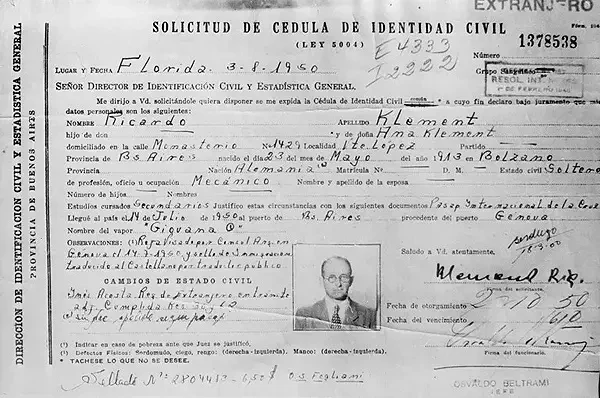 EXTRANJERO
SOLICITUD DE CEDULA DE IDENTIDAD CIVIL
(LEY 5004)
1378538
Número
E 4333
I 2222
LUGAR Y FECHA Florida. 3-8-1950
Grupo
RESOL. INT.
SEÑOR DIRECTOR DE IDENTIFICACIÓN CIVIL Y ESTADÍSTICA GENERAL.
Me dirijo a Vd. solicitándole quiera disponer se me expida la Cédula de Identidad Civil común a cuyo fin declaro bajo juramento que mis
datos personales son los siguientes:
NOMBRE Ricardo APELLIDO Klement
hijo de don y de doña Ana Klement
domiciliado en la calle Monasterio Nº 1429 Localidad Vte. López Partido
Provincia de Bs. Aires nacido el día 23 del mes de Mayo del año 1913 en Bolzano
Provincia Nación Alemania Matrícula Nº D. M. Estado civil Soltero
de profesión, oficio u ocupación Mecánico Nombre y apellido de la esposa
Número de hijos Nombres
Estudios cursados Secundarios Justifico estas circunstancias con los siguientes documentos Pasap. Internacional de la
Llegó al país el 14 de Julio de 1950 al puerto de Bs. Aires procedente del puerto Genova
Nombre del vapor "Giovana C"
OBSERVACIONES: (1) Visado por Consul Arg. en
Genova el
traducido al Castellano por traductor público
Saludo a Vd. atentamente.
CAMBIOS DE ESTADO CIVIL
Firma del solicitante.
Fecha de otorgamiento 2 10 50
Fecha de vencimiento
Firma del funcionario.
(¹) Indicar en caso de pobreza ante que Juez se justificó.
(²) Defectos Físicos: Sordomudo, ciego, rengo: (derecha - izquierda). Manco: (derecha - izquierda).
* TACHESE LO QUE NO SE DESEE.
Sellado Nº 2804413 - 6,50$
OSVALDO BELTRAMI
JEFE
DIRECCION DE IDENTIFICACION CIVIL Y ESTADISTICA GENERAL
PROVINCIA DE BUENOS AIRES